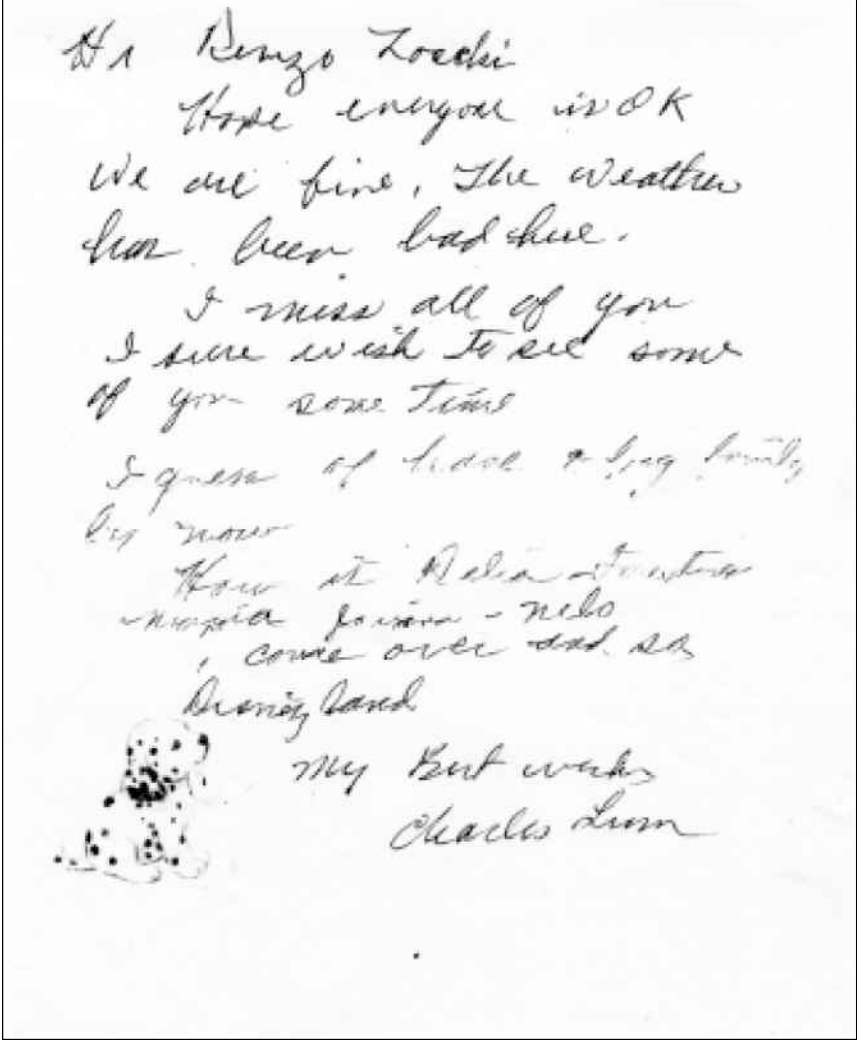 Hi Renzo
Hope everyone is OK
We are fine, The weather
has been bad here.
I miss all of you
I sure wish to see some
of you some Time
I guess of have a big family
by now
How is Delia
maria - nelo
, come over and
Disney land
My Best wishes
Charles